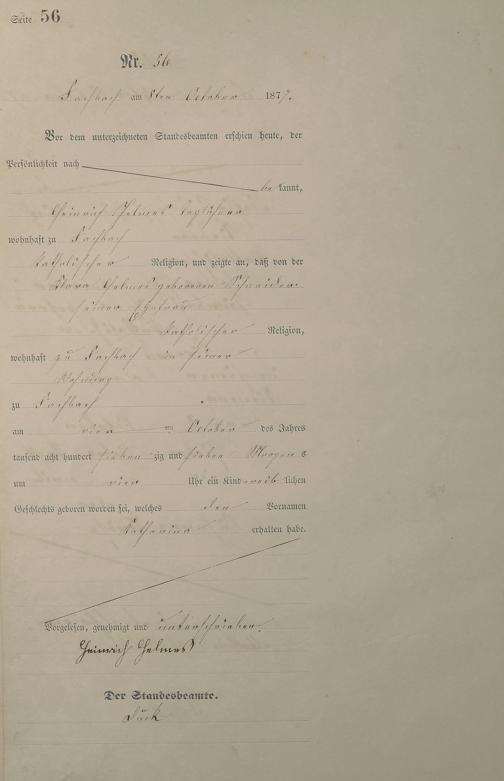 Seite 56
Nr. 56
Fachbach am 8ten October 1877.
Vor dem unterzeichneten Standesbeamten erschien heute, der
Persönlichkeit nach
be kannt,
Heinrich Helmes Taglöhner
wohnhaft zu Fachbach
katholischer Religion, und zeigte an, daß von der
Helmes geborenen Schneider
seiner Ehefrau
katholischer Religion,
wohnhaft zu Fachbach in seiner
Wohnung
zu Fachbach
am vier ten October des Jahres
tausend acht hundert sieben zig und sieben Morgens
um vier Uhr ein Kind weib lichen
Geschlechts geboren worden sei, welches den Vornamen
Katharina erhalten habe.
Vorgelesen, genehmigt und unterschrieben.
Heinrich Helmes
Der Standesbeamte.